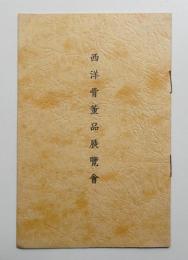 西洋骨董品展覽會